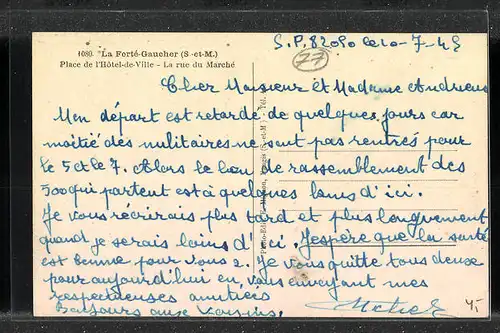 S.P. 82050 le 10-7-45
1080. "La Ferté-Gaucher (S-et-M.)
77
Place de l'Hôtel-de-Ville - La rue du Marché
Cher Monsieur et Madame Andrieux
Mon départ est retardé de quelques jours car
moitié des militaires ne sont pas rentrés pour
le 5 et le 7. Alors le lieu de rassemblement des
500 qui partent est à quelques kms d'ici.
Je vous récrirais plus tard et plus longuement
quand je serais loins d'ici. J'espère que la santé
est bonne pour vous 2. Je vous quitte tous deux
pour aujourd'hui en, vous envoyant mes
respectueuses amitiés
Bonjours aux Voisins.
Michel
4,-